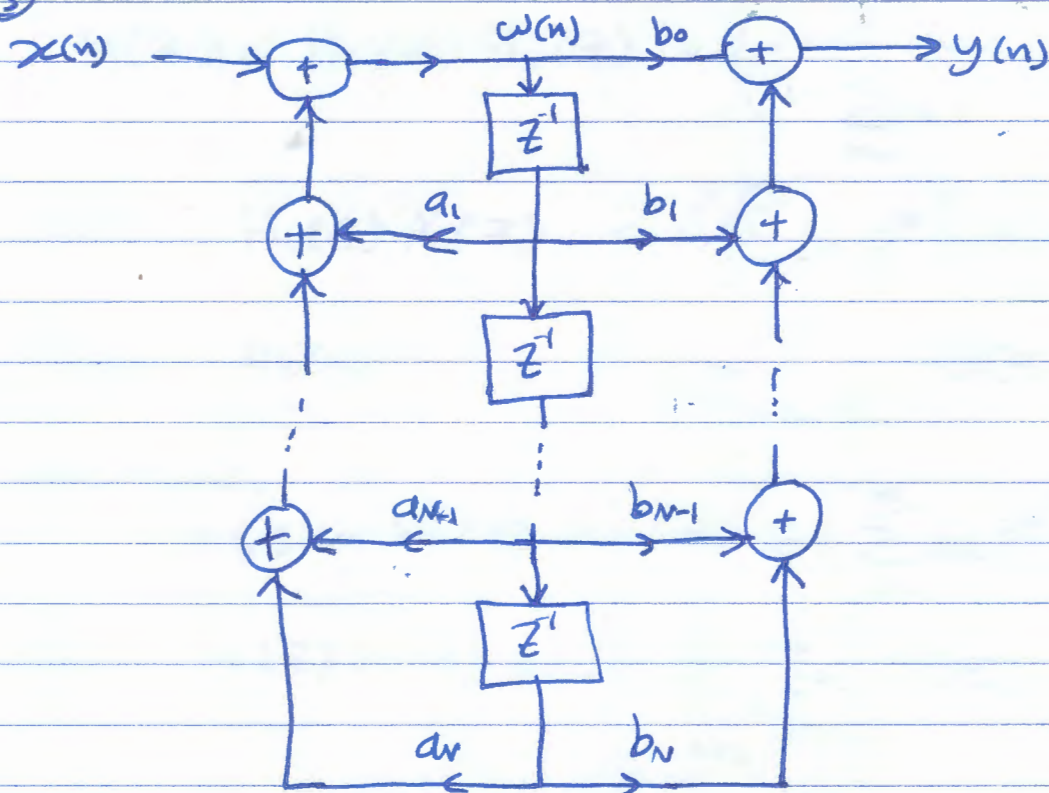 x(n) + ω(n) b₀ + y(n)
z⁻¹
+ a₁ b₁ +
z⁻¹
+ aN+1 bN-1 +
z⁻¹
aN bN